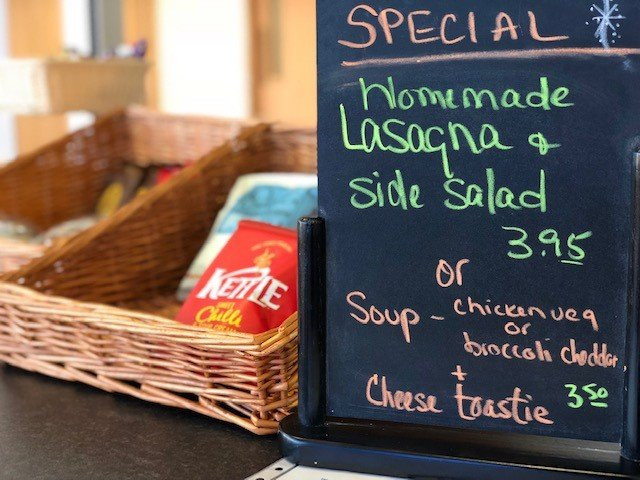 SPECIAL
Homemade
Lasagna &
side salad
3.95
or
Soup - chicken veg
or
broccoli cheddar
+
Cheese toastie 3.50
KETTLE
Chilli